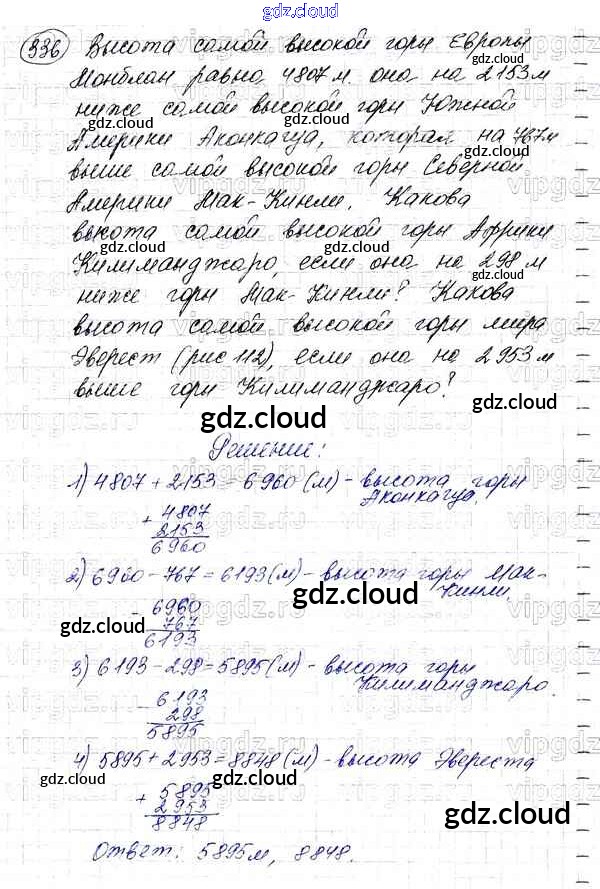 gdz.cloud
336 Высота самой высокой горы Европы
Монблан равна 4807 м. она на 2153 м
ниже самой высокой горы Южной
Америки Аконкагуа, которая на 767 м
выше самой высокой горы Северной
Америки Мак-Кинли. Какова
высота самой высокой горы Африки
Килиманджаро, если она на 298 м
ниже горы Мак-Кинли? Какова
высота самой высокой горы мира
Эверест (рис 112), если она на 2953 м
выше горы Килиманджаро?
gdz.cloud
Решение:
1) 4807 + 2153 = 6960 (м) - высота горы
Аконкагуа.
+ 4807
2153
6960
2) 6960 - 767 = 6193 (м) - высота горы Мак-
Кинли.
- 6960
767
6193
3) 6193 - 298 = 5895 (м) - высота горы
Килиманджаро.
- 6193
298
5895
4) 5895 + 2953 = 8848 (м) - высота Эвереста
+ 5895
2953
8848
Ответ: 5895 м, 8848.